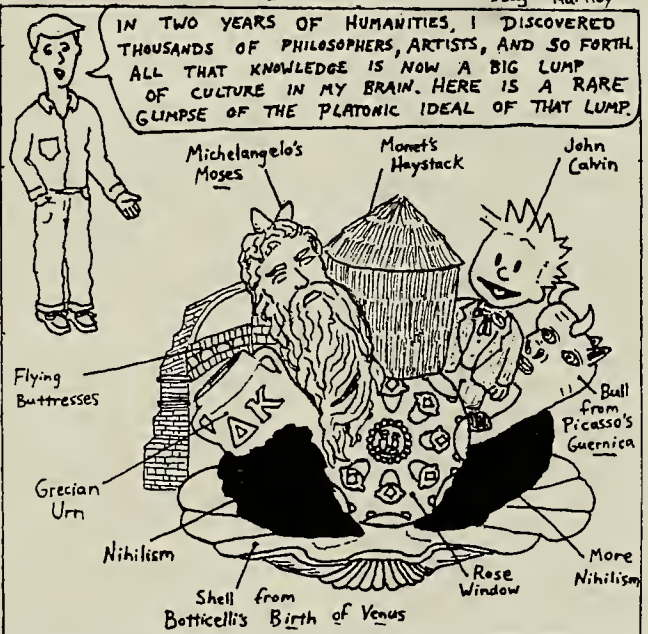 IN TWO YEARS OF HUMANITIES, I DISCOVERED
THOUSANDS OF PHILOSOPHERS, ARTISTS, AND SO FORTH.
ALL THAT KNOWLEDGE IS NOW A BIG LUMP
OF CULTURE IN MY BRAIN. HERE IS A RARE
GLIMPSE OF THE PLATONIC IDEAL OF THAT LUMP.
Michelangelo's
Moses
Monet's
Haystack
John
Calvin
Flying
Buttresses
ΔK
Bull
from
Picasso's
Guernica
Grecian
Urn
Nihilism
More
Nihilism
Rose
Window
Shell from
Botticelli's Birth of Venus